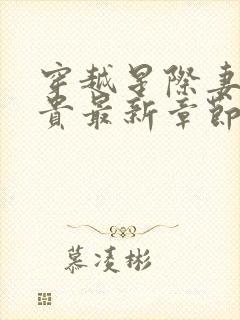 穿越星際妻
貴最新章節
慕凌彬